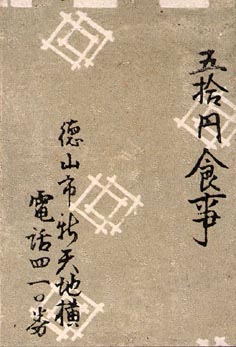 五拾円食事
徳山市新天地横
電話四一〇番